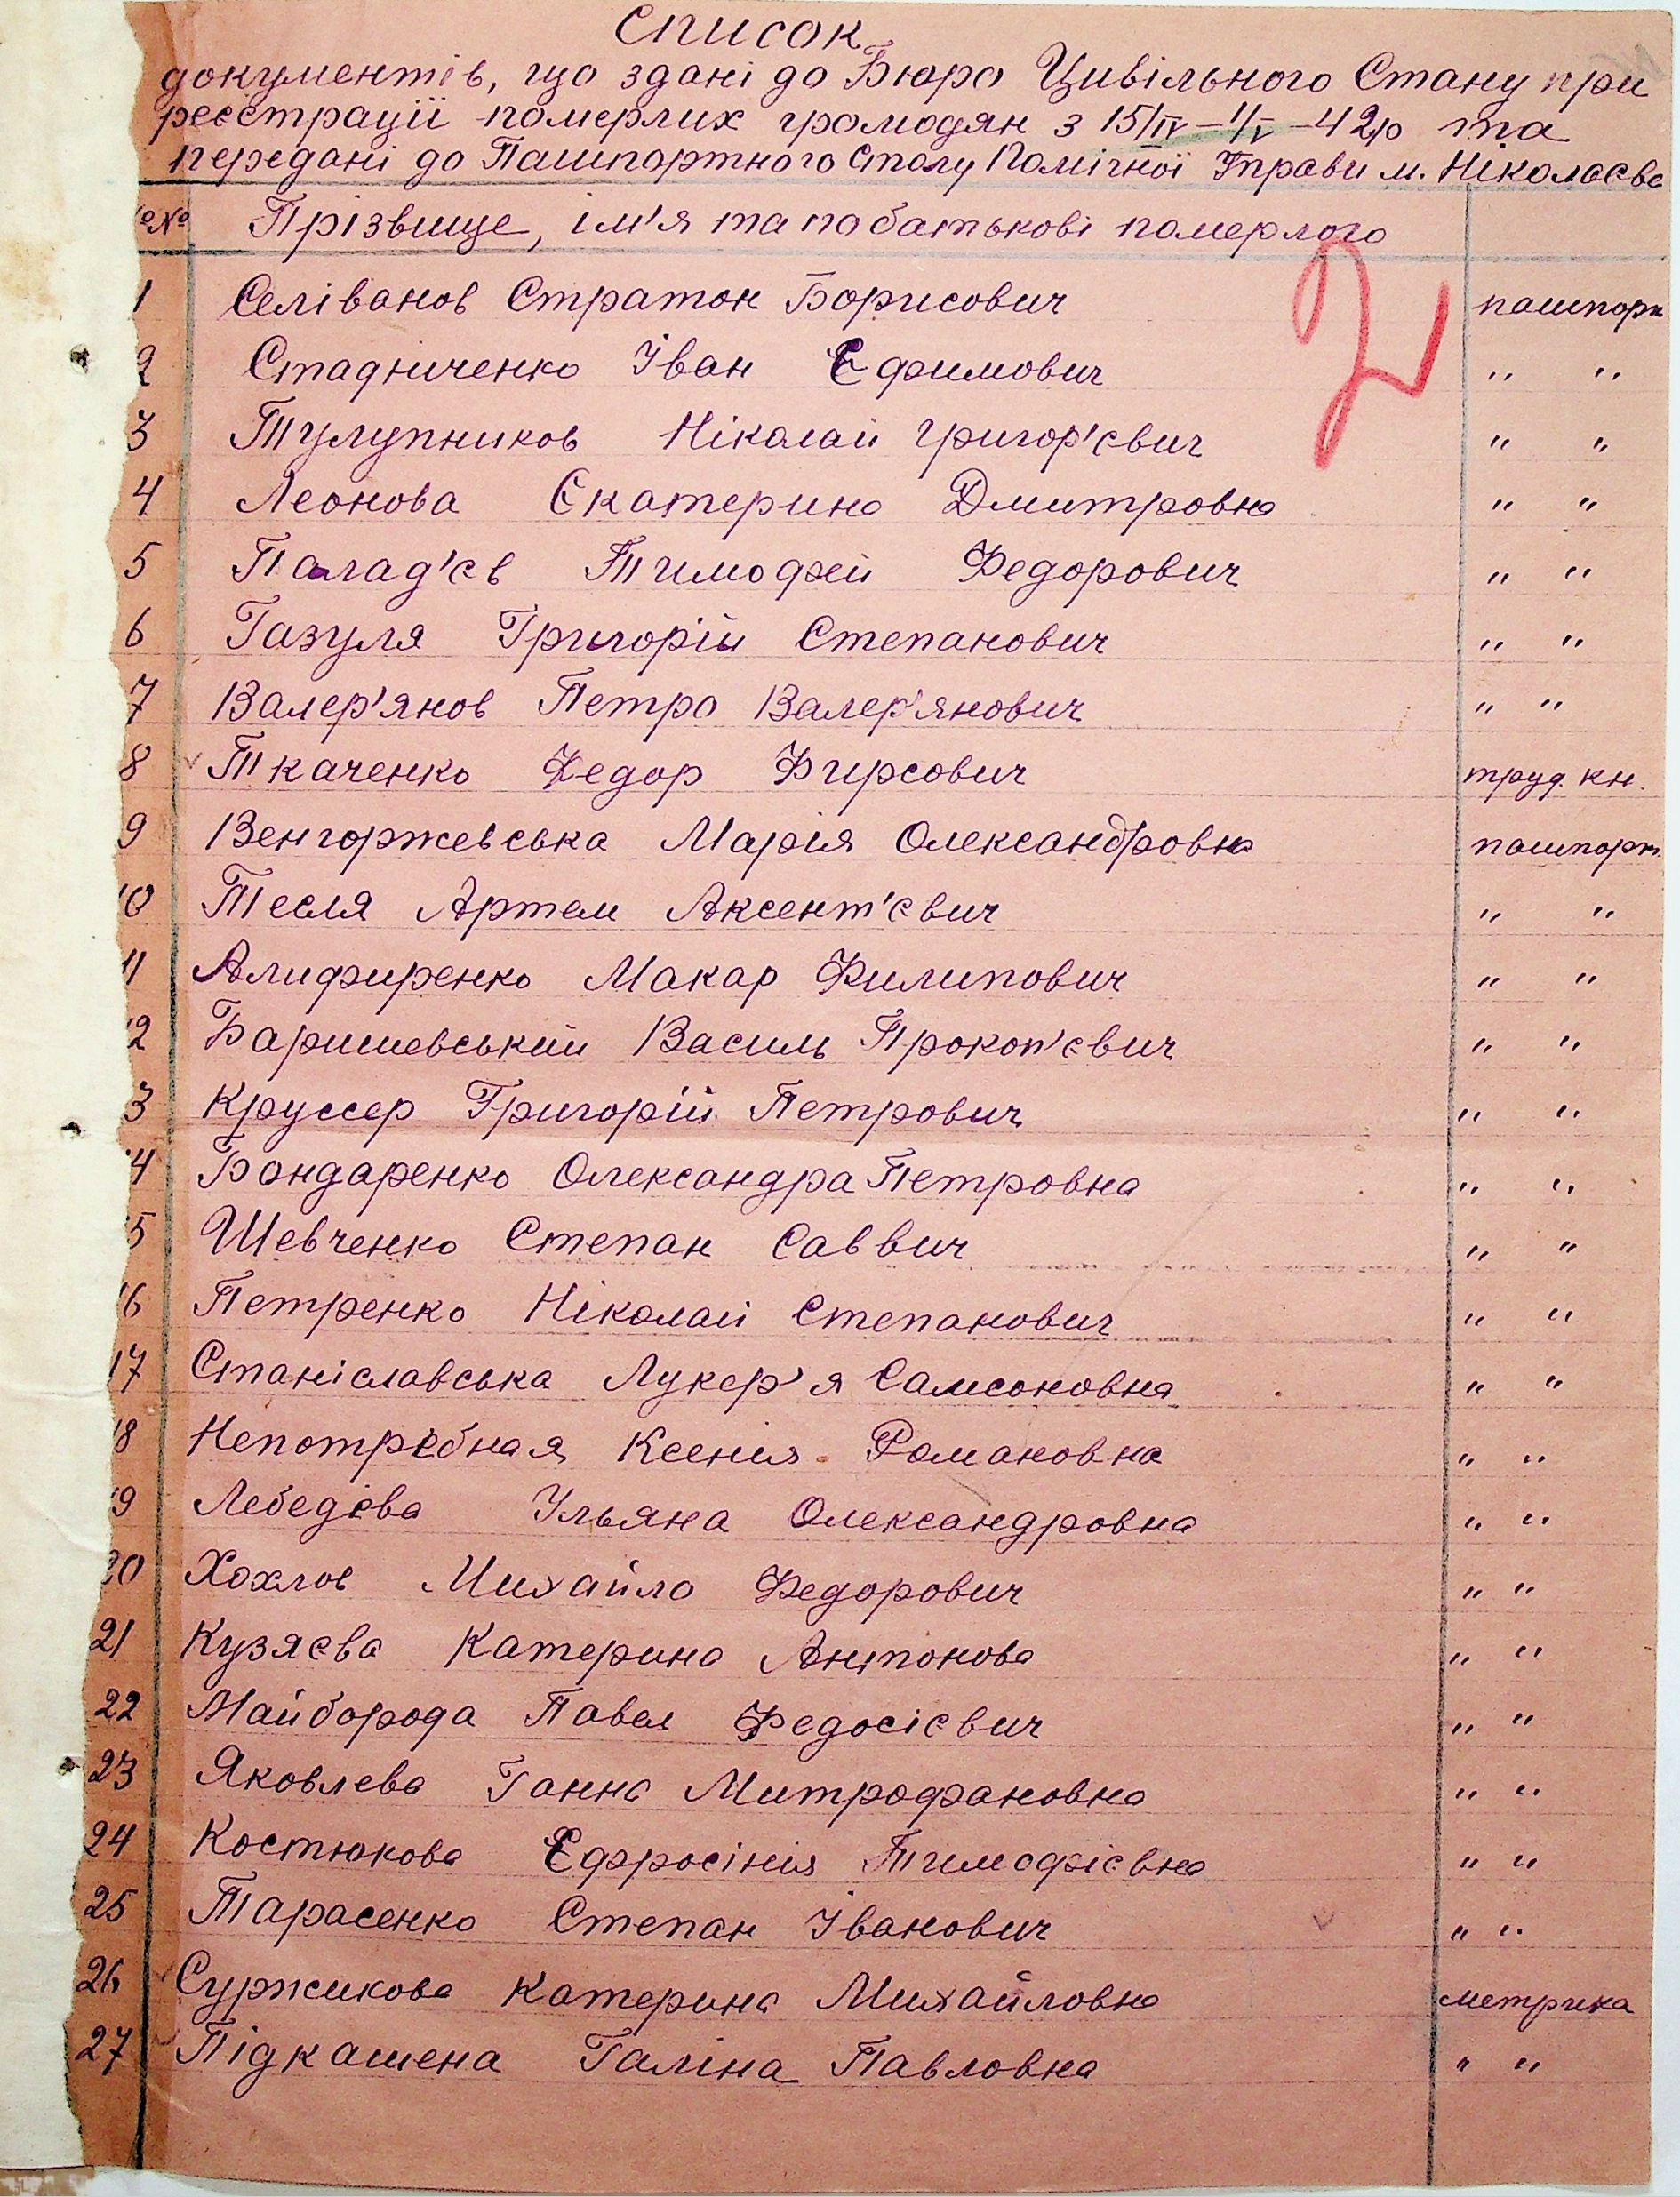 Список
документів, що здані до Бюро Цивільного Стану при
реєстрації померлих громодян з 15/IV–1/V–42р та
передані до Пашпортного Столу Помічної Управи м. Ніколаєва
№№ Прізвище, ім'я та побатькові померлого
1 Селіванов Стратон Борисович пашпорт
2 Стадніченко Іван Єфимович " "
3 Тулупников Ніколай Григор'євич " "
4 Леонова Єкатерина Дмитровна " "
5 Палад'єв Тимофей Федорович " "
6 Газуля Григорій Степанович " "
7 Валер'янов Петро Валер'янович " "
8 Ткаченко Федор Фирсович труд. кн.
9 Венгоржевська Марія Олександровна пашпорт.
10 Тесля Артем Аксент'євич " "
11 Алифиренко Макар Филипович " "
12 Баришевський Василь Прокоп'євич " "
3 Круссер Григорій Петрович " "
14 Бондаренко Олександра Петровна " "
15 Шевченко Степан Саввич " "
16 Петренко Ніколай Степанович " "
17 Станіславська Лукер'я Самсоновна " "
18 Непотребная Ксенія Романовна " "
19 Лебедєва Ульяна Олександровна " "
20 Хохлов Михайло Федорович " "
21 Кузяєва Катерина Антонова " "
22 Майборода Павел Федосієвич " "
23 Яковлева Ганна Митрофановна " "
24 Костюкова Єфросінія Тимофієвна " "
25 Тарасенко Степан Іванович " "
26 Суржикова Катерина Михайловна метрика
27 Підкашена Галіна Павловна " "
2